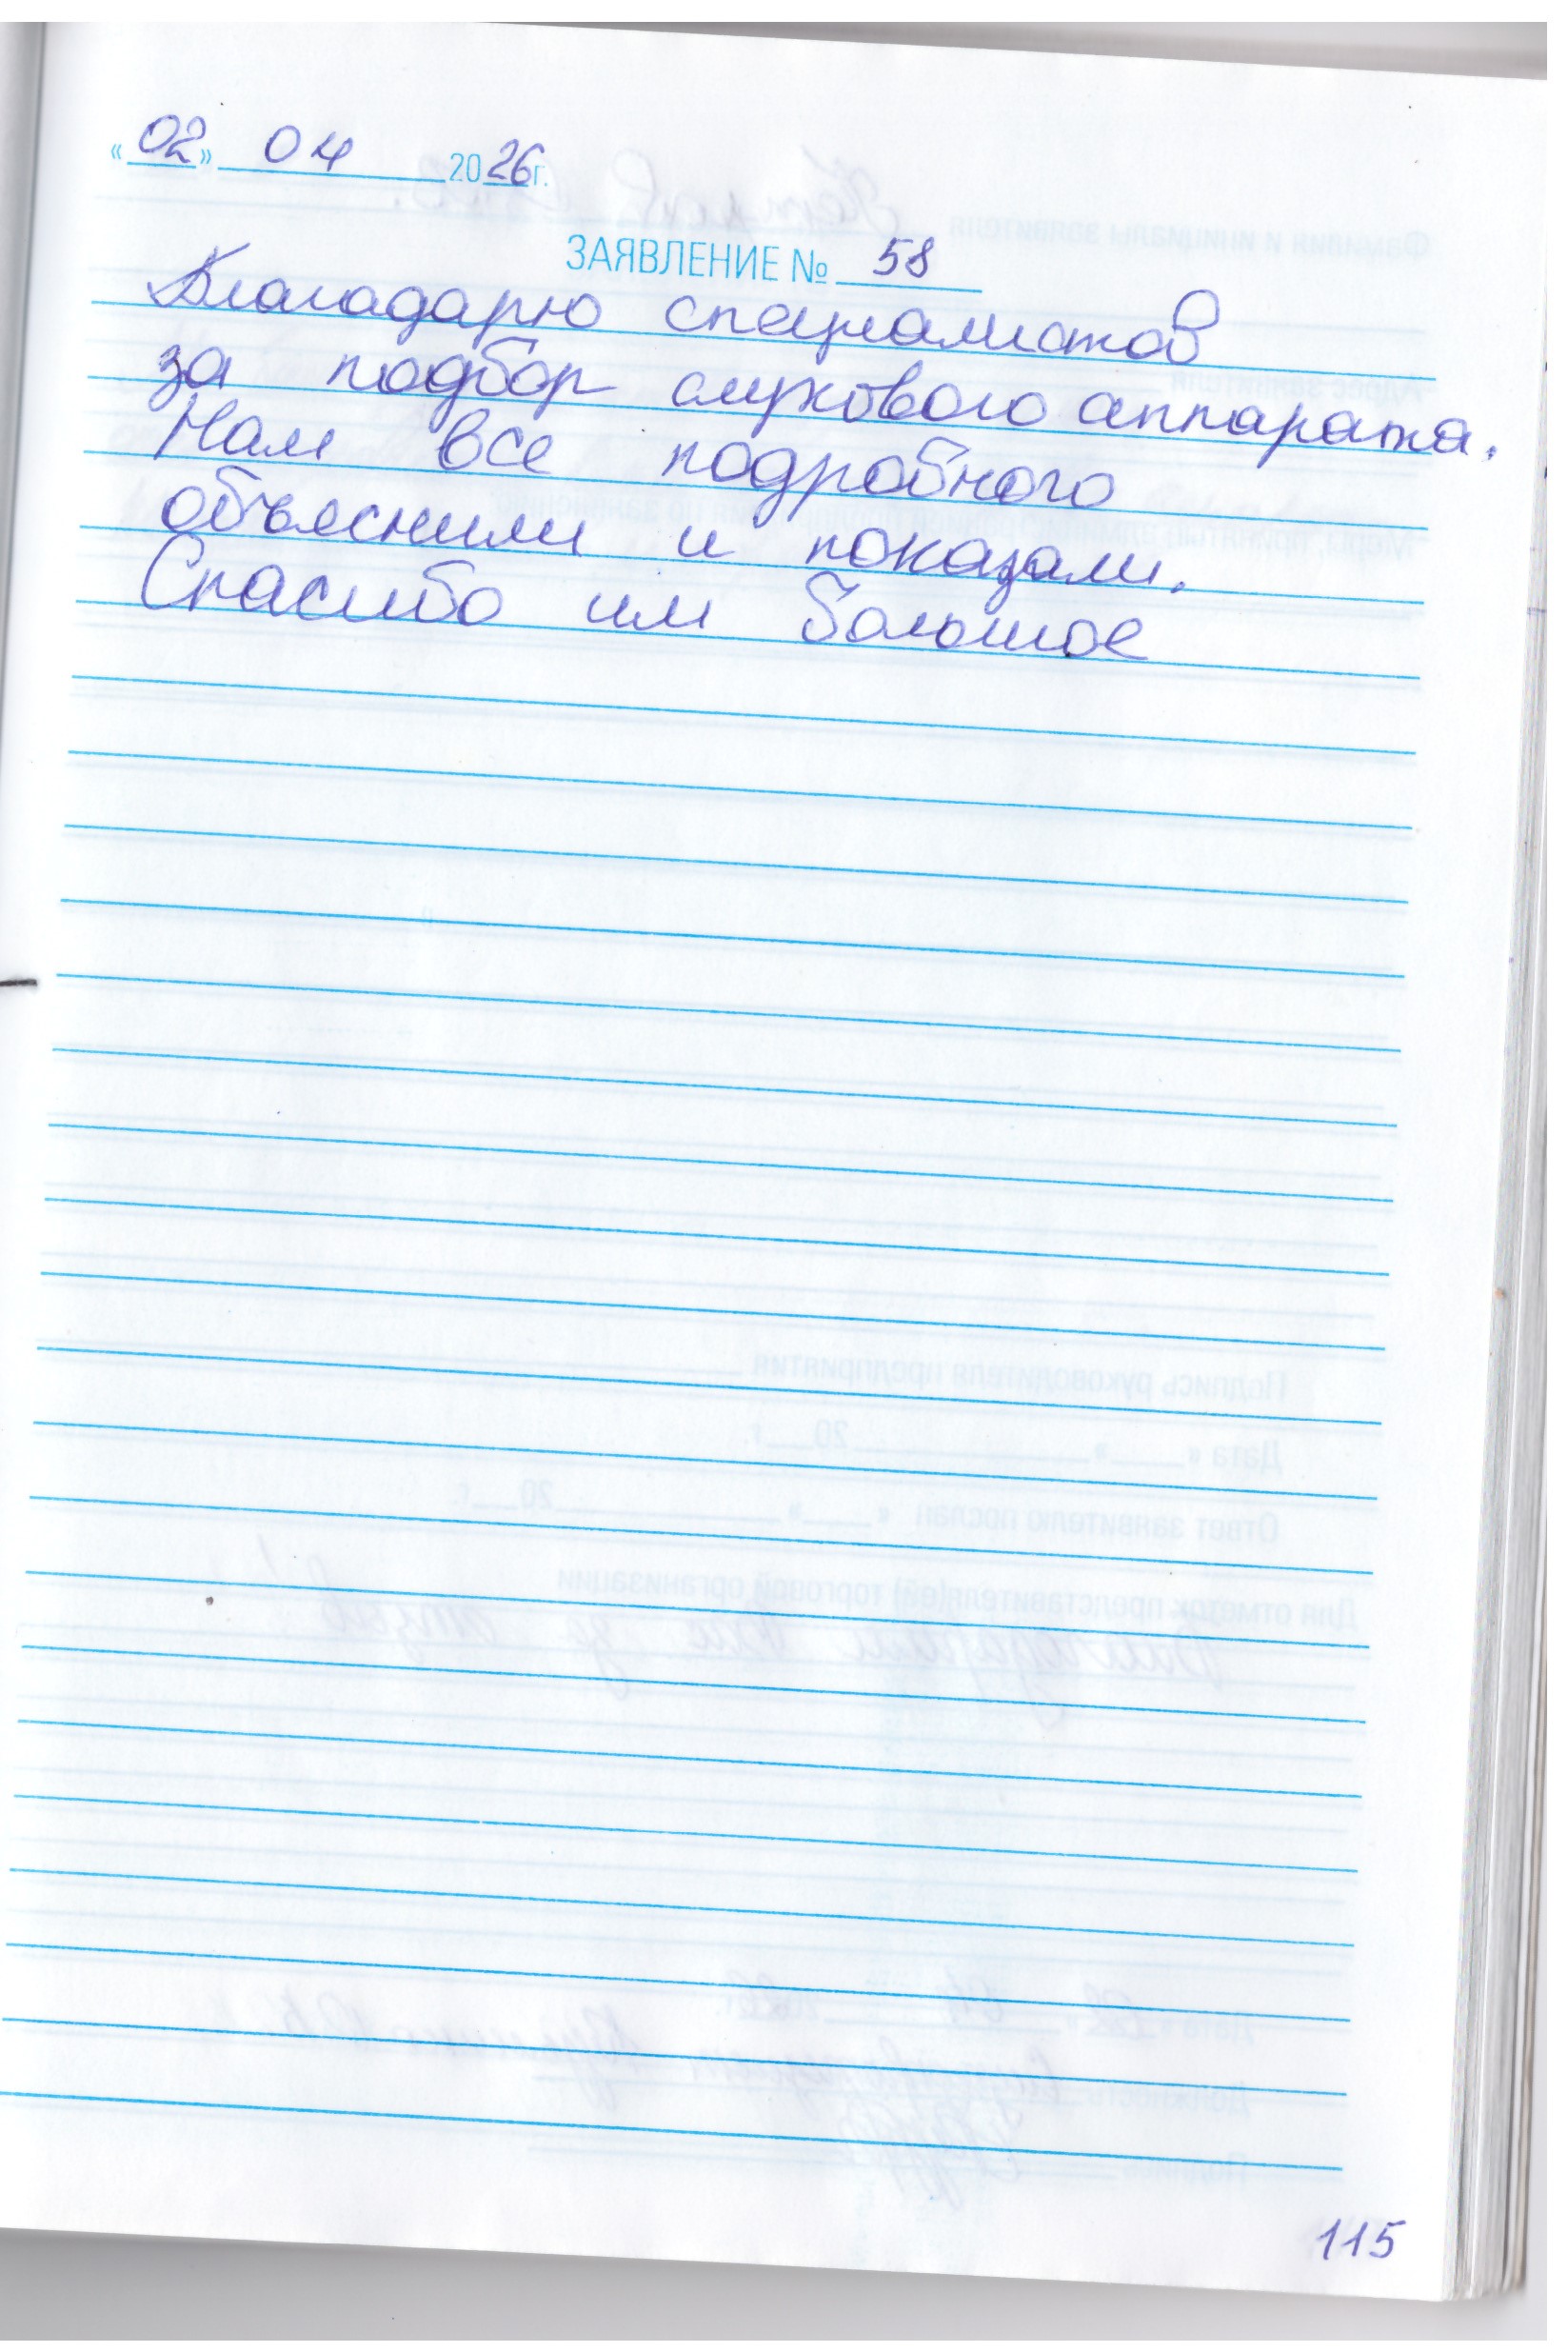 «02» 04 2026г.
ЗАЯВЛЕНИЕ № 58
Благадарю специалистов
за подбор слухового аппарата.
Нам все подробного
объяснили и показали.
Спасибо им большое
115